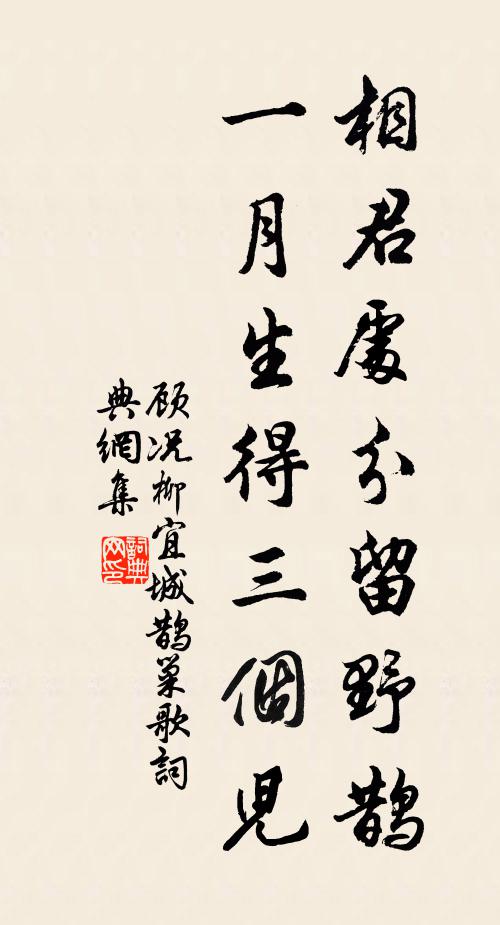 相君處分留野鵲
一月生得三個兒
顾况柳宜城鵲巢歌詞
典網集
詞典
网印